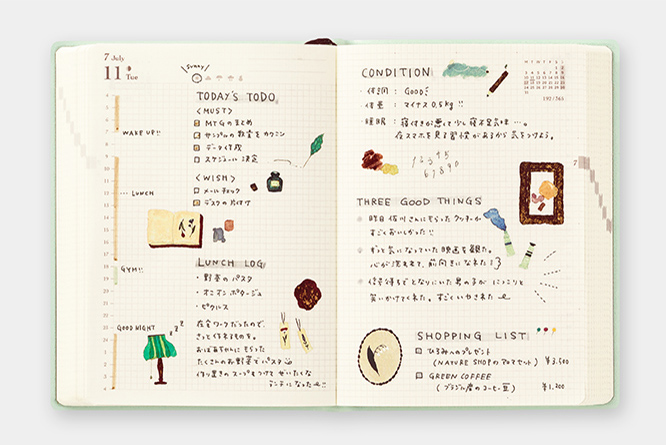 7 July
11 Tue
sunny
TODAY'S TODO
<MUST>
MTGのまとめ
サンプルの数量をカクニン
データ作成
スケジュール決定
WAKE UP!!
<WISH>
メールチェック
デスクの片付け
... LUNCH
LUNCH LOG
・野菜のパスタ
・オニオンポタージュ
・ピクルス
GYM!!
在宅ワークだったので、
さっと作れるものを。
おばあちゃんにもらった
たくさんのお野菜でパスタ
作り置きのスープもつけてぜいたくな
ランチになった!!
GOOD NIGHT
z z z
CONDITION
・体調 : Good
・体重 : マイナス0.5kg!!
・睡眠 : 寝付きが悪くて少し寝不足気味…。
在スマホを見る習慣があるから気をつけよう。
192/265
7
1 2 3 4 5
6 7 8 9 0
THREE GOOD THINGS
昨日佐川さんにもらったクッキーが
すごくおいしかった!!
ずっと気になっていた映画を観た。
心が洗われて、前向きになれた!
信号待ちでとなりにいた男の子がにっこりと
笑いかけてくれた。すごくいやされた
SHOPPING LIST
ひろみへのプレゼント
(NATURE SHOPのアロマセット) ¥3,500
GREEN COFFEE
(ブラジル産のコーヒー豆) ¥1,200